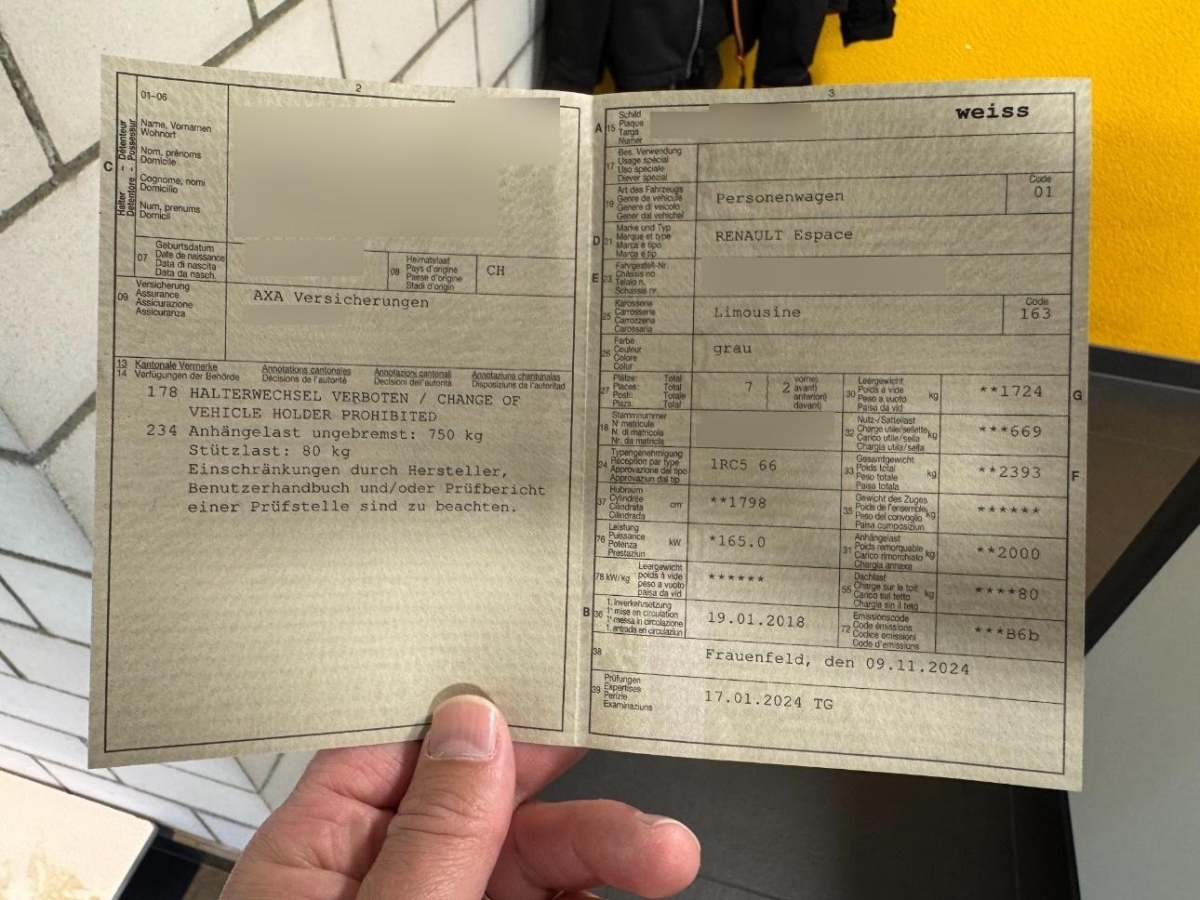 2
01-06
Name, Vornamen
Wohnort
Nom, prénoms
Domicile
Cognome, nomi
Domicilio
Num, prenums
Domicil
C
Halter - Détenteur
Detentore - Possessur
07
Geburtsdatum
Date de naissance
Data di nascita
Data da nasch.
08
Heimatstaat
Pays d'origine
Paese d'origine
Stadi d'origin
CH
09
Versicherung
Assurance
Assicurazione
Assicuranza
AXA Versicherungen
13 Kantonale Vermerke Annotations cantonales Annotazioni cantonali Annotaziuns chantunalas
14 Verfügungen der Behörde Décisions de l'autorité Decisioni dell'autorità Disposiziuns da l'autoritad
178 HALTERWECHSEL VERBOTEN / CHANGE OF
VEHICLE HOLDER PROHIBITED
234 Anhängelast ungebremst: 750 kg
Stützlast: 80 kg
Einschränkungen durch Hersteller,
Benutzerhandbuch und/oder Prüfbericht
einer Prüfstelle sind zu beachten.
3
A 15
Schild
Plaque
Targa
Numer
weiss
17
Bes. Verwendung
Usage spécial
Uso speciale
Diever spezial
19
Art des Fahrzeugs
Genre de véhicule
Genere di veicolo
Gener dal vehichel
Personenwagen
Code
01
D 21
Marke und Typ
Marque et type
Marca e tipo
Marca e tip
RENAULT Espace
E 23
Fahrgestell-Nr.
Châssis no
Telaio n.
Schassis nr.
25
Karosserie
Carrosserie
Carrozzeria
Carossaria
Limousine
Code
163
26
Farbe
Couleur
Colore
Colur
grau
27
Plätze: Total
Places: Total
Posti: Totale
Plazs: Total
7
2
vorne)
avant)
anteriori)
davant)
30
Leergewicht
Poids à vide
Peso a vuoto
Paisa da vid
kg
**1724
G
18
Stammnummer
N° matricule
N. di matricola
Nr. da matricla
32
Nutz-/Sattellast
Charge utile/sellette
Carico utile/sella
Chargia utila/sella
kg
***669
24
Typengenehmigung
Réception par type
Approvazione del tipo
Approvaziun dal tip
1RC5 66
33
Gesamtgewicht
Poids total
Peso totale
Paisa totala
kg
**2393
F
37
Hubraum
Cylindrée
Cilindrata
Cilindrada
cm³
**1798
35
Gewicht des Zuges
Poids de l'ensemble
Peso del convoglio
Paisa cumposiziun
kg
******
76
Leistung
Puissance
Potenza
Prestaziun
kW
*165.0
31
Anhängelast
Poids remorquable
Carico rimorchiato
Chargia annexa
kg
**2000
78 kW/kg
Leergewicht
poids à vide
peso a vuoto
paisa da vid
******
55
Dachlast
Charge sur le toit
Carico sul tetto
Chargia sin il tetg
kg
****80
B 36
1. Inverkehrsetzung
1re mise en circulation
1a messa in circolazione
1. entrada en circulaziun
19.01.2018
72
Emissionscode
Code émissions
Codice emissioni
Code d'emissiuns
***B6b
38
Frauenfeld, den 09.11.2024
39
Prüfungen
Expertises
Perizie
Examinaziuns
17.01.2024 TG